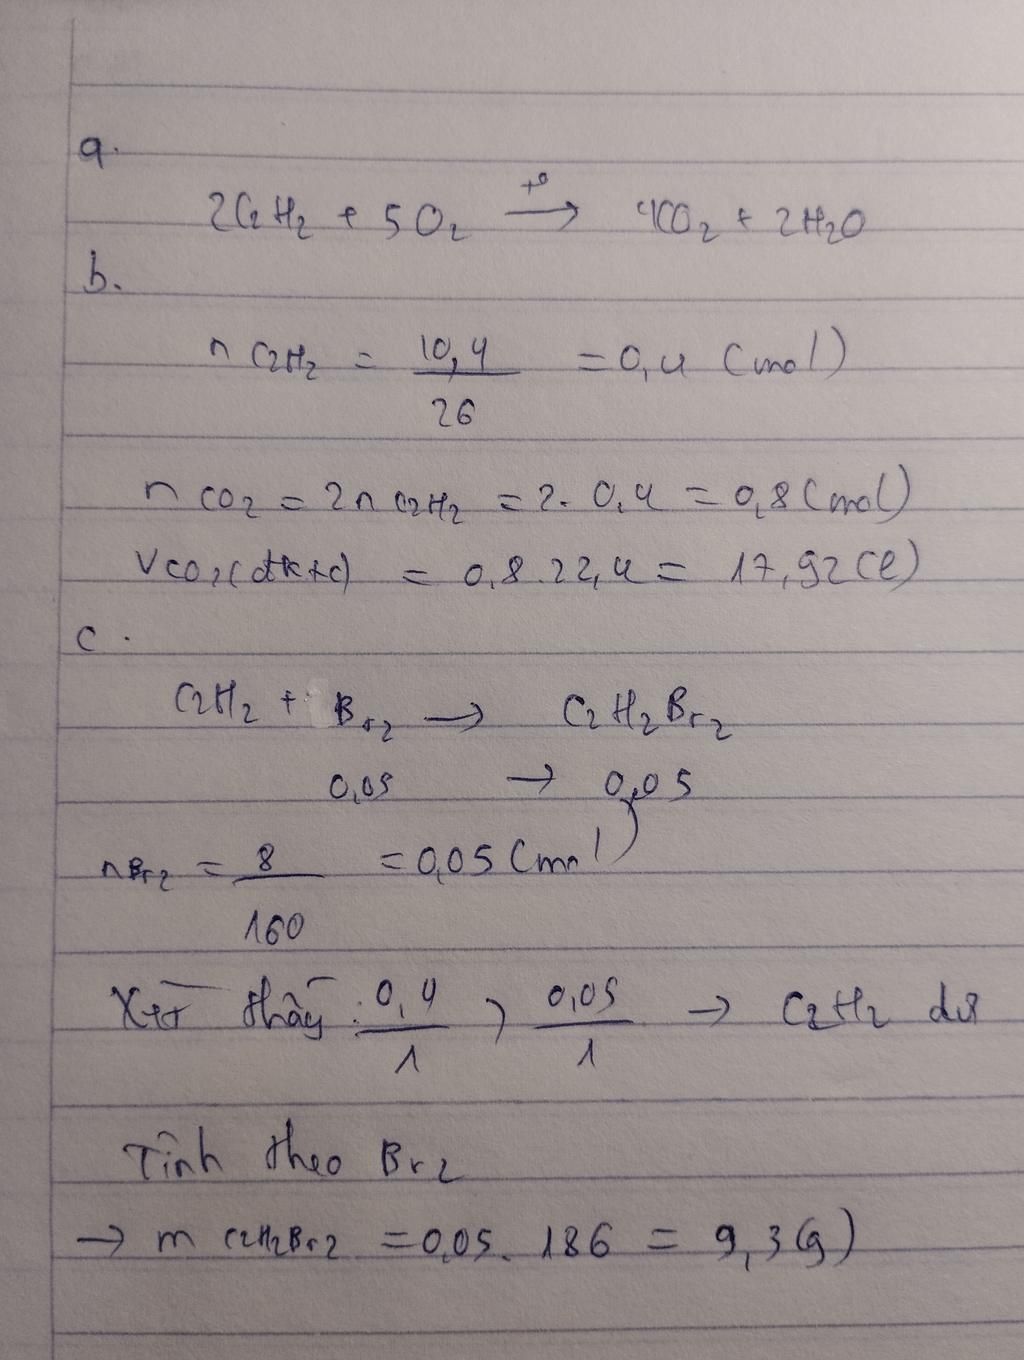 a.
2C2H2 + 5O2 t° → 4CO2 + 2H2O
b.
n C2H2 = 10,4 / 26 = 0,4 (mol)
n CO2 = 2n C2H2 = 2. 0,4 = 0,8 (mol)
V CO2 (đktc) = 0,8. 22,4 = 17,92 (l)
c.
C2H2 + Br2 → C2H2Br2
0,05 → 0,05
nBr2 = 8 / 160 = 0,05 (mol)
Xét thấy: 0,4 / 1 > 0,05 / 1 → C2H2 dư
Tính theo Br2
→ m C2H2Br2 = 0,05. 186 = 9,3 (g)